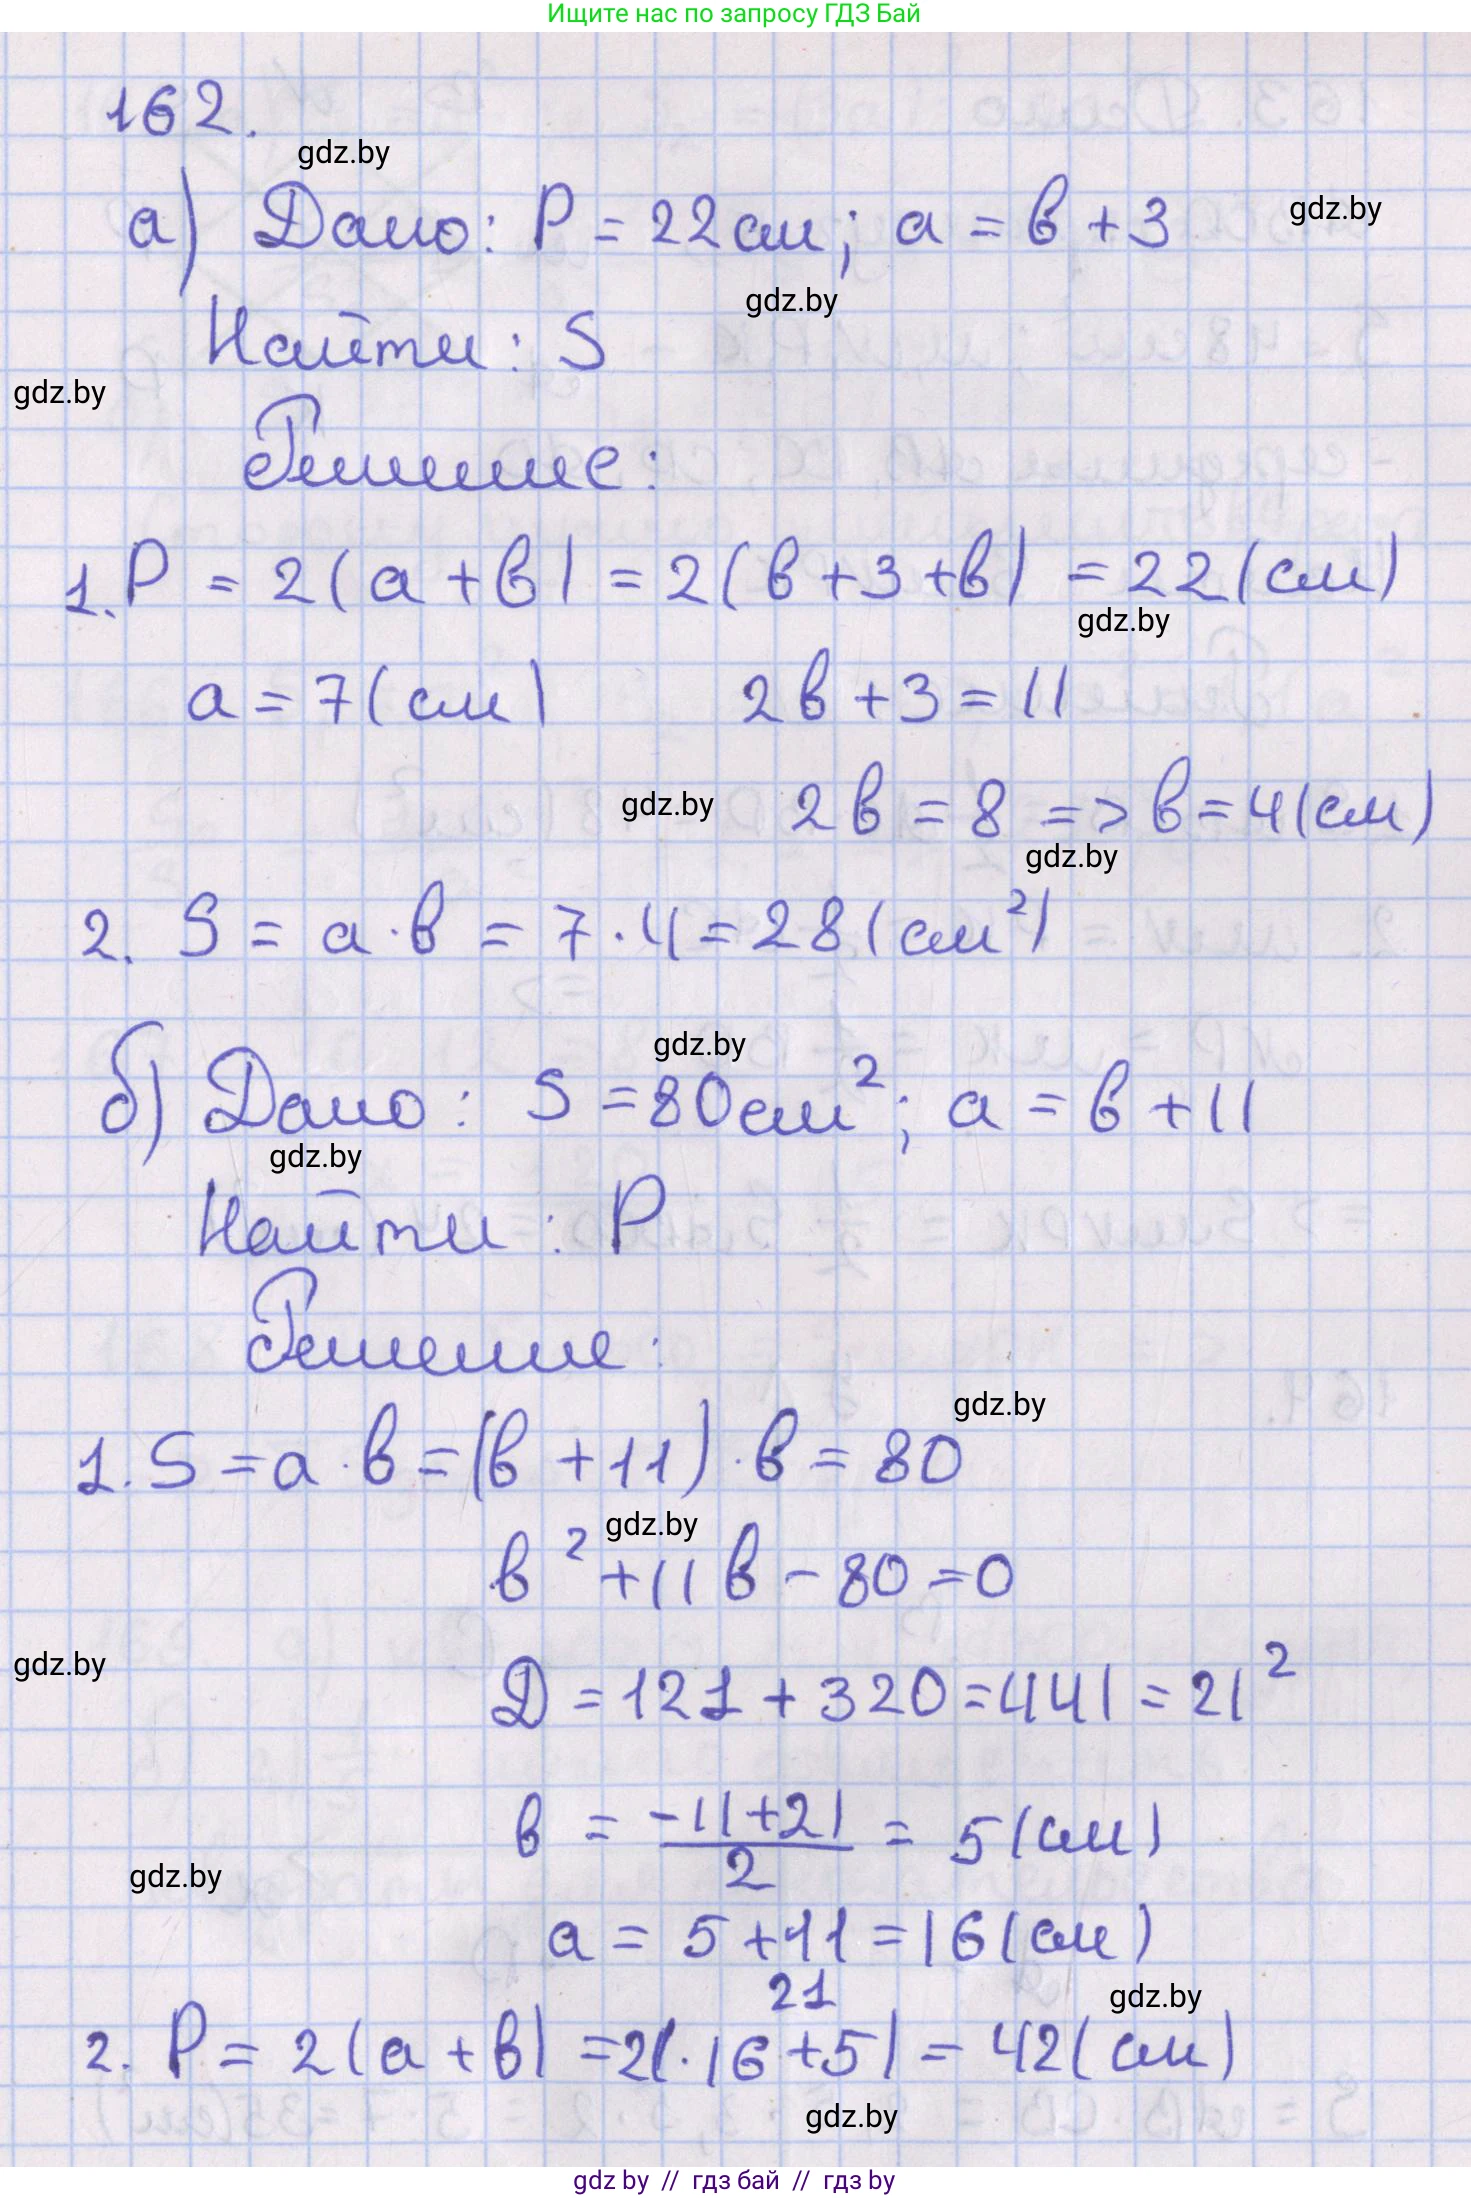 Ищите нас по запросу ГДЗ Бай
162.
gdz.by
а) Дано: P = 22см; a = b + 3
gdz.by
gdz.by
Найти: S
gdz.by
Решение:
1. P = 2(a + b) = 2(b + 3 + b) = 22(см)
gdz.by
a = 7(см) 2b + 3 = 11
gdz.by 2b = 8 => b = 4(см)
gdz.by
2. S = a · b = 7 · 4 = 28(см²)
gdz.by
б) Дано: S = 80см²; a = b + 11
gdz.by
Найти: P
Решение:
gdz.by
1. S = a · b = (b + 11) · b = 80
gdz.by
b² + 11b - 80 = 0
gdz.by
D = 121 + 320 = 441 = 21²
b = \frac{-11+21}{2} = 5(см)
gdz.by
a = 5 + 11 = 16(см)
21
gdz.by
2. P = 2(a + b) = 2(·16 + 5) = 42(см)
gdz.by
gdz by // гдз бай // гдз by